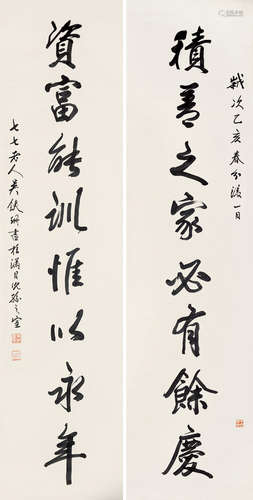 歲次乙亥春分後一日
積善之家必有餘慶
資富能訓惟以永年
七七老人吳書於滿之室